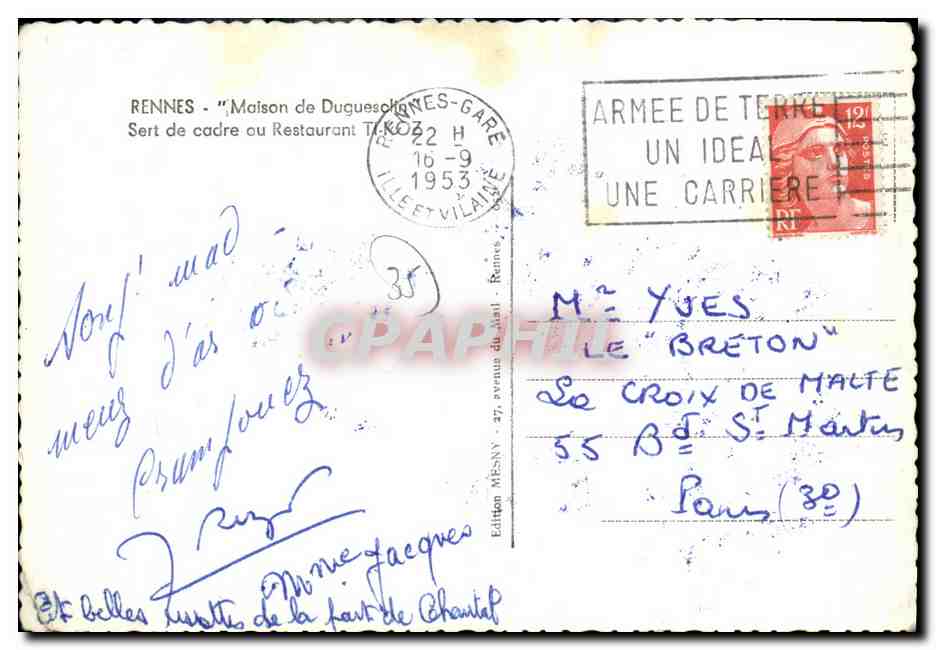 RENNES - "Maison de Duguesclin"
Sert de cadre au Restaurant TI-KOZ
RENNES-GARE
22 H
16-9
1953
ILLE ET VILAINE
ARMEE DE TERRE
UN IDEAL
UNE CARRIERE
12F
POSTES
RF
35
CPAPHIL
Edition MESNY - 27, avenue du Mail - Rennes
Mr YVES
LE "BRETON"
La CROIX DE MALTE
55 Bd St Martin
Paris (3e)
mad
d'as
Jacques
Et belles de la part de Chantal